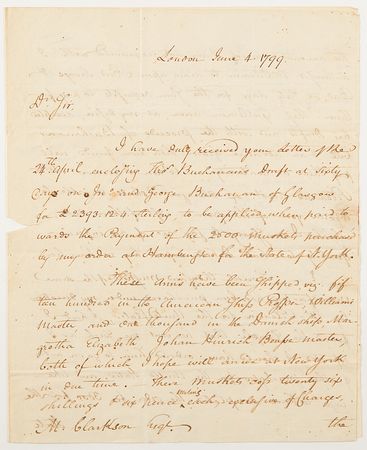 London June 4. 1799.
Dr Sir.
I have duly received your letter of the
24th April, enclosing Thos Buchanan's Draft at Sixty
Days on Jno and George Buchanan of Glasgow
for £2393.12.4 Sterling to be applied when paid to
wards the Payment of the 2500 Muskets purchased
by my order at Hamburgh for the State of N. York.
These Arms have been Shipped viz. fif
teen hundred in the American Ship Williams
Master, and one thousand in the Danish ship Mar
gretha Elizabeth Johan Hinrich master,
both of which I hope will arrive at New York
in due time. These Muskets cost twenty six
shillings & six pence each, exclusive of Charges,
M. Clarkson Esqr.
the